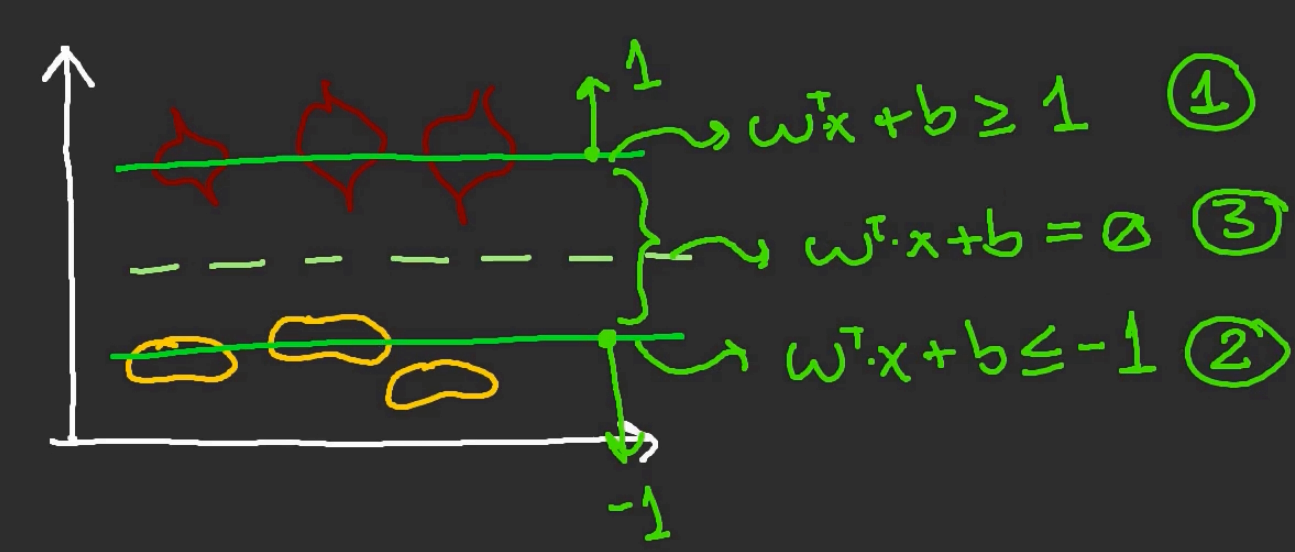 1
ωᵀx + b ≥ 1 ①
ωᵀ·x + b = 0 ③
ωᵀ·x + b ≤ -1 ②
-1